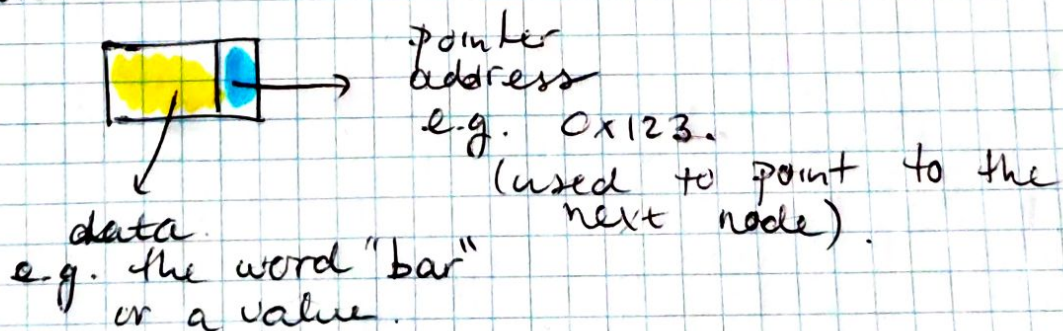 pointer
address
e.g. 0x123.
(used to point to the
next node).
data.
e.g. the word "bar"
or a value.